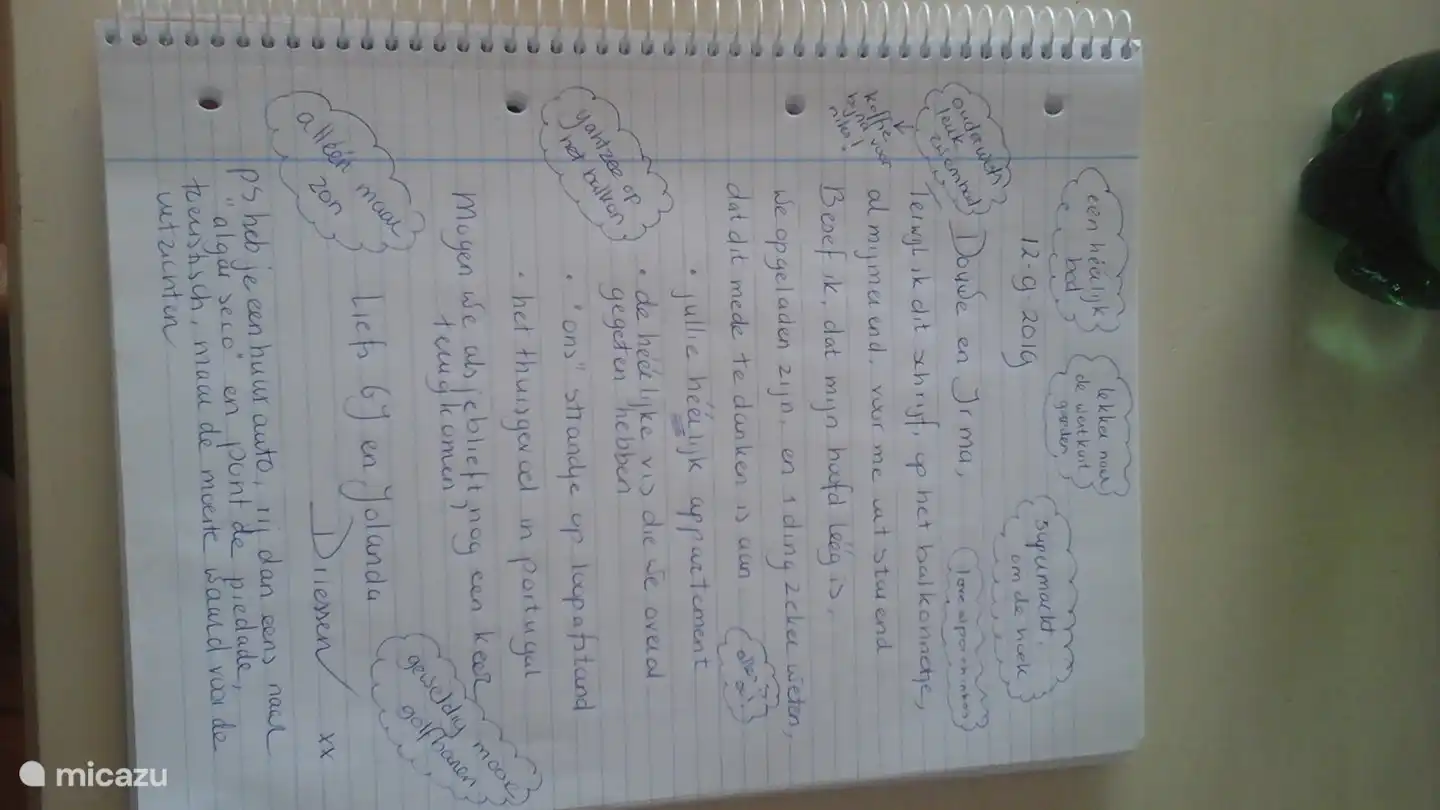 één héérlijk
bed
lekker naar
de
supermarkt
om de hoek
12-9-2019
ouderwets
leuk
koffie
voor
bijna
niks!
Douwe en Irma,
Terwijl ik dit schrijf, op het balkonnetje,
al mijmerend, voor me uit starend
Besef ik, dat mijn hoofd léég is,
we opgeladen zijn, en 1 ding zeker weten,
dat dit mede te danken is aan
• jullie héérlijk appartement
• de héérlijke vis die we overal
gegeten hebben
• "ons" strandje op loopafstand
• het thuisgevoel in portugal
yahtzee op
het balkon
Mogen we alsjeblieft, nog een keer
terugkomen,
alléén maar
zon
Liefs Gy en Jolanda
Dilessen
xx
geweldig mooie
golfbanen
ps heb je een huurauto, rij dan eens naar
"algar seco" en punt de piedade,
toeristisch, maar de moeite waard voor de
uitzichten
micazu